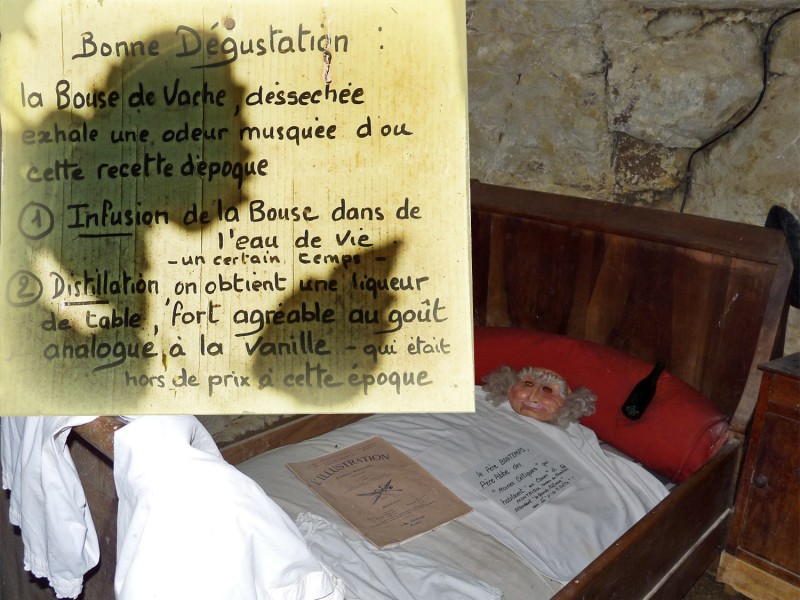 Bonne Dégustation :
la Bouse de Vache, desséchée
exhale une odeur musquée d'ou
cette recette d'époque
1 Infusion de la Bouse dans de
l'eau de vie
- un certain temps -
2 Distillation on obtient une liqueur
de table, fort agréable au goût
analogue à la vanille - qui était
hors de prix à cette époque
L'ILLUSTRATION
le Père BONTEMPS,
Père Abbé des
"moines
qui
habitaient